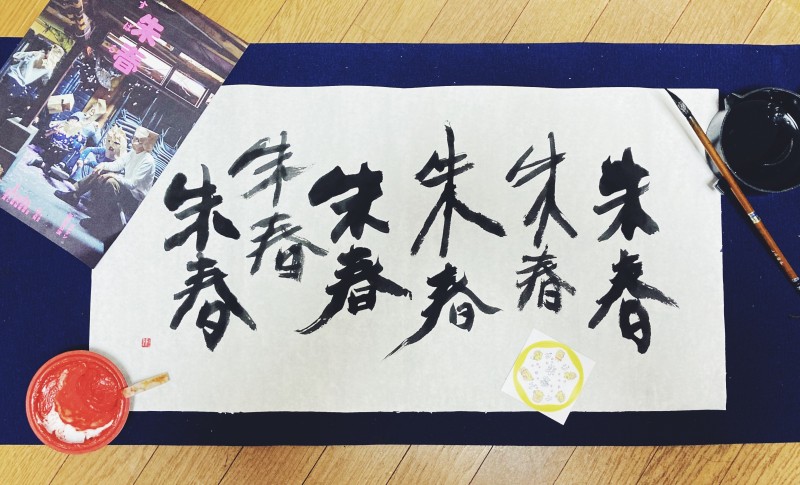 朱春
朱春
朱春
朱春
朱春
朱春
朱春